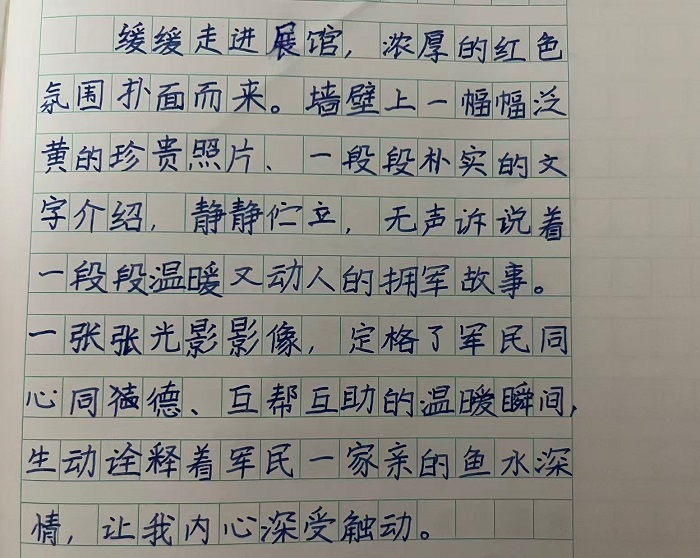 缓缓走进展馆，浓厚的红色
氛围扑面而来。墙壁上一幅幅泛
黄的珍贵照片、一段段朴实的文
字介绍，静静伫立，无声诉说着
一段段温暖又动人的拥军故事。
一张张光影影像，定格了军民同
心同德、互帮互助的温暖瞬间，
生动诠释着军民一家亲的鱼水深
情，让我内心深受触动。